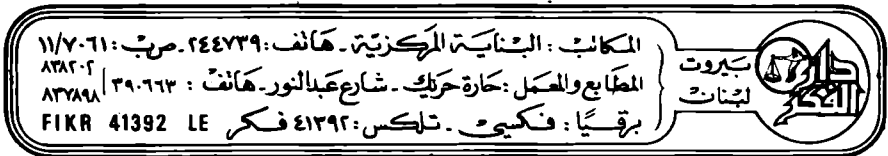 دار الفكر
بيروت
لبنان
المكاتب : البناية المركزية - هاتف : ٢٤٤٧٣٩ - ص ب : ١١/٧٠٦١
المطابع والمعمل : حارة حريك - شارع عبد النور - هاتف : ٣٩٠٦٦٣
٨٣٨٢٠٢
٨٣٧٨٩٨
برقيًا : فكسي - تلكس : ٤١٣٩٢ فكر FIKR 41392 LE